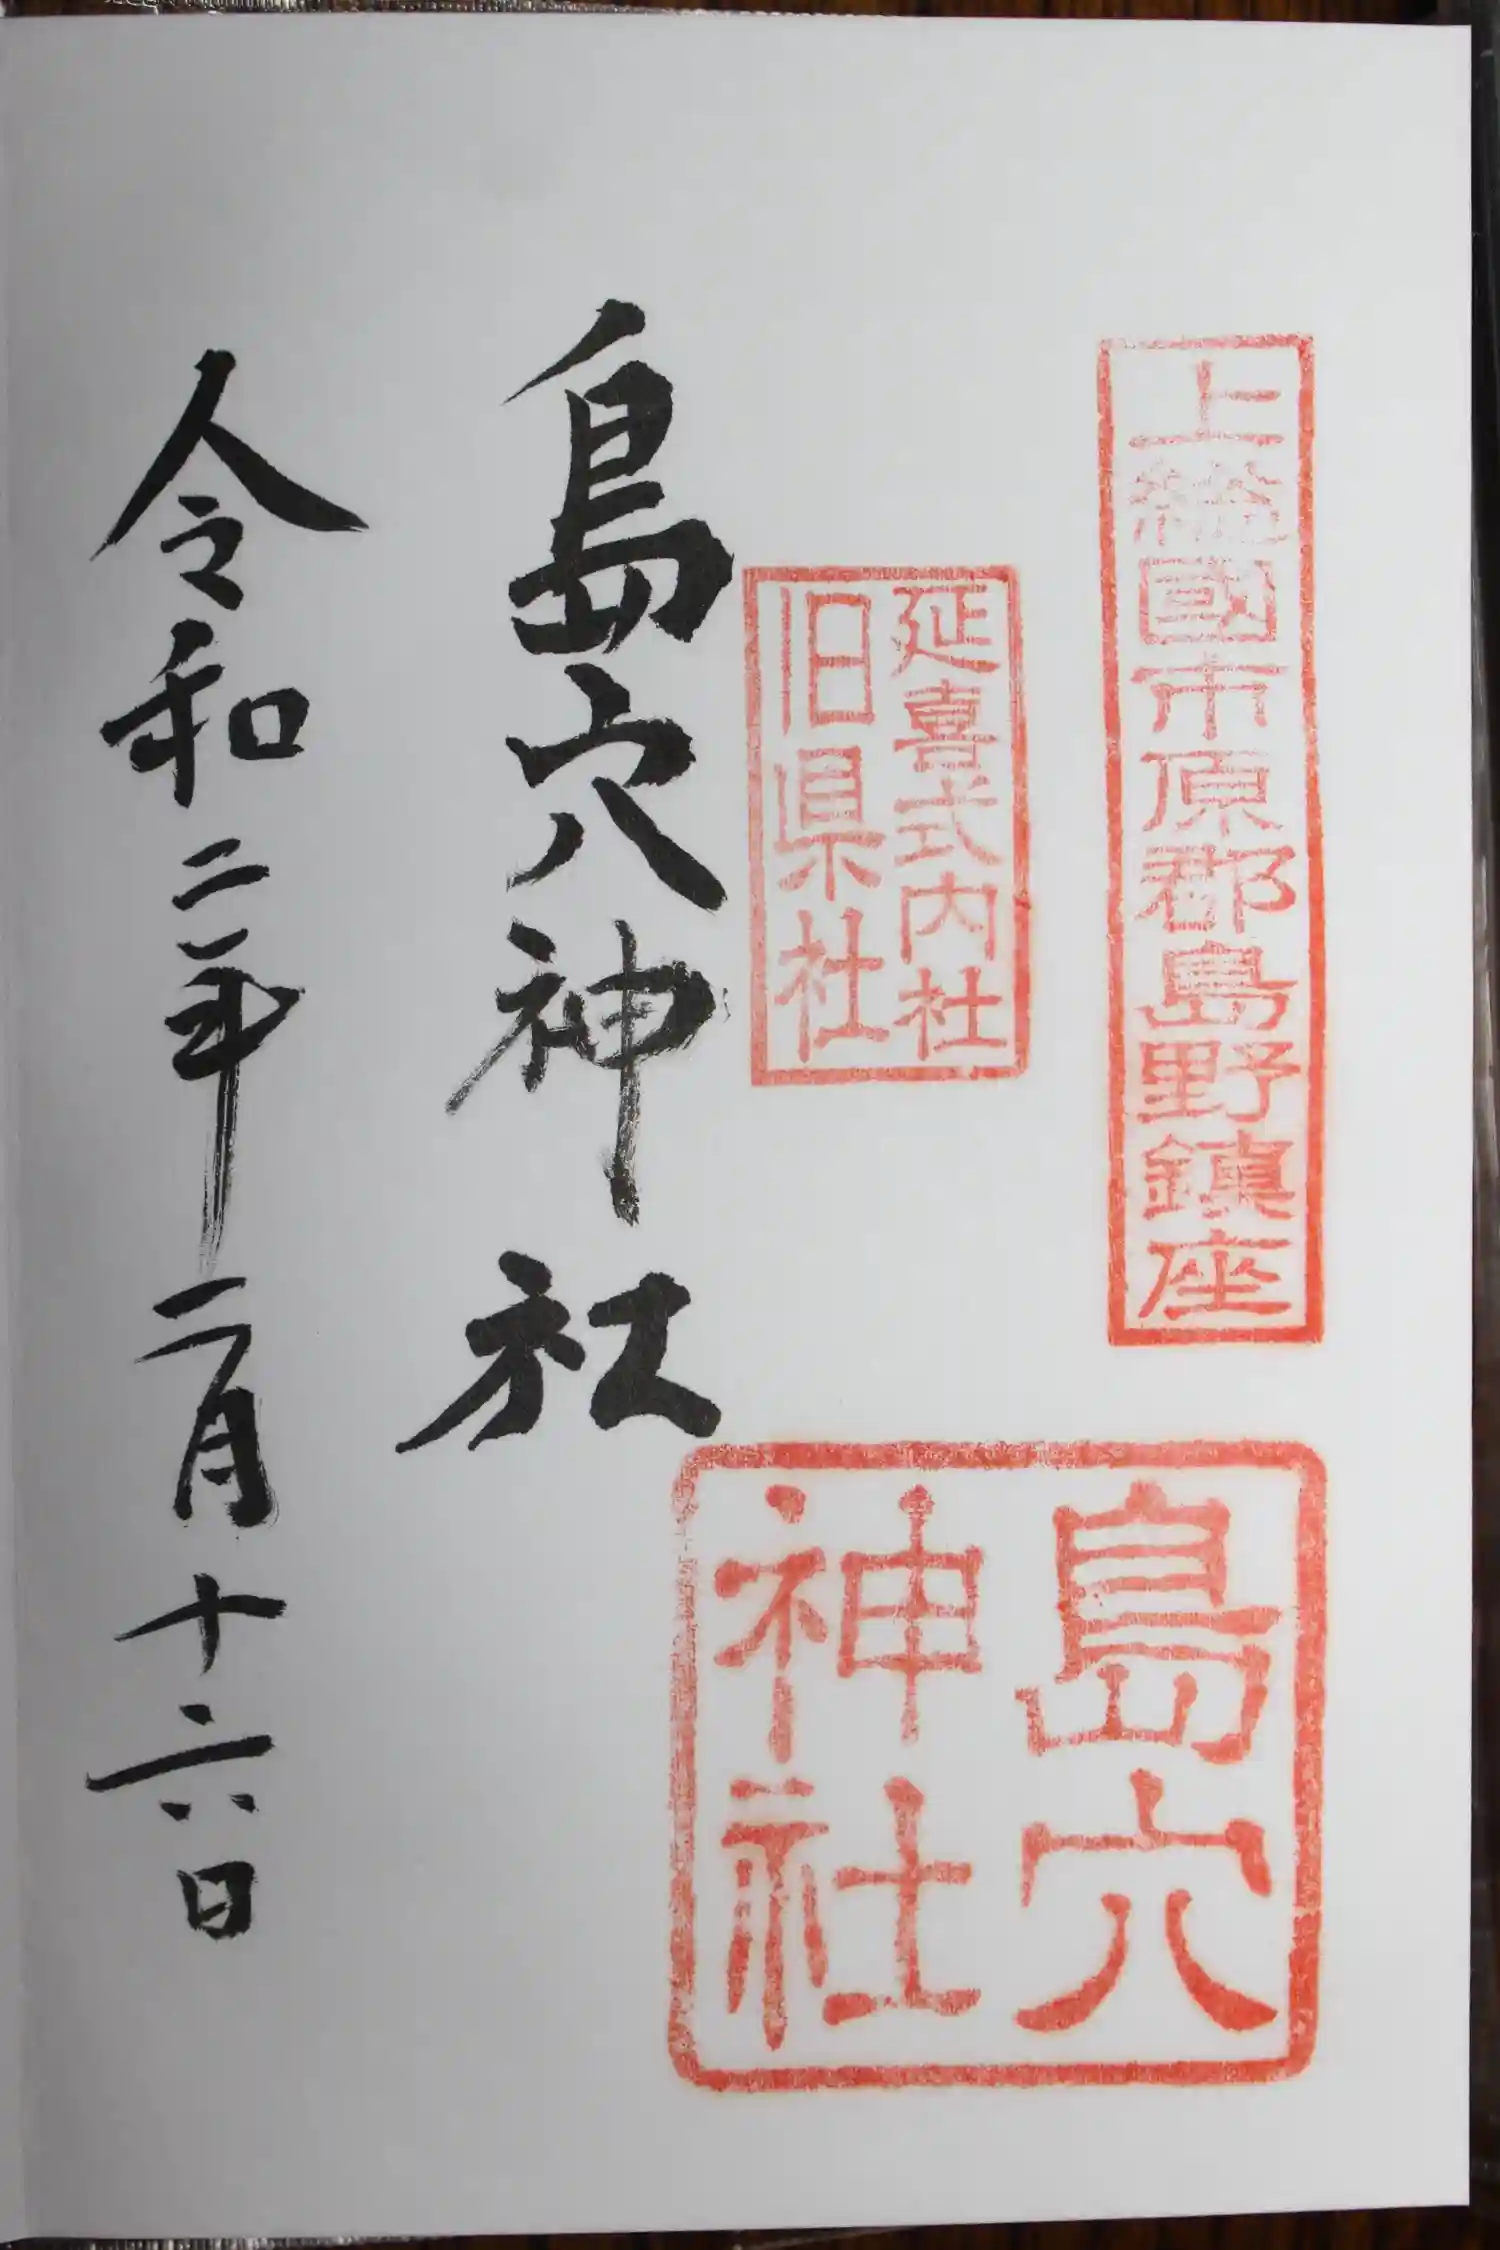 上総國市原郡島野鎮座
延喜式内社
旧県社
島穴
神社
島穴神社
令和二年二月十六日